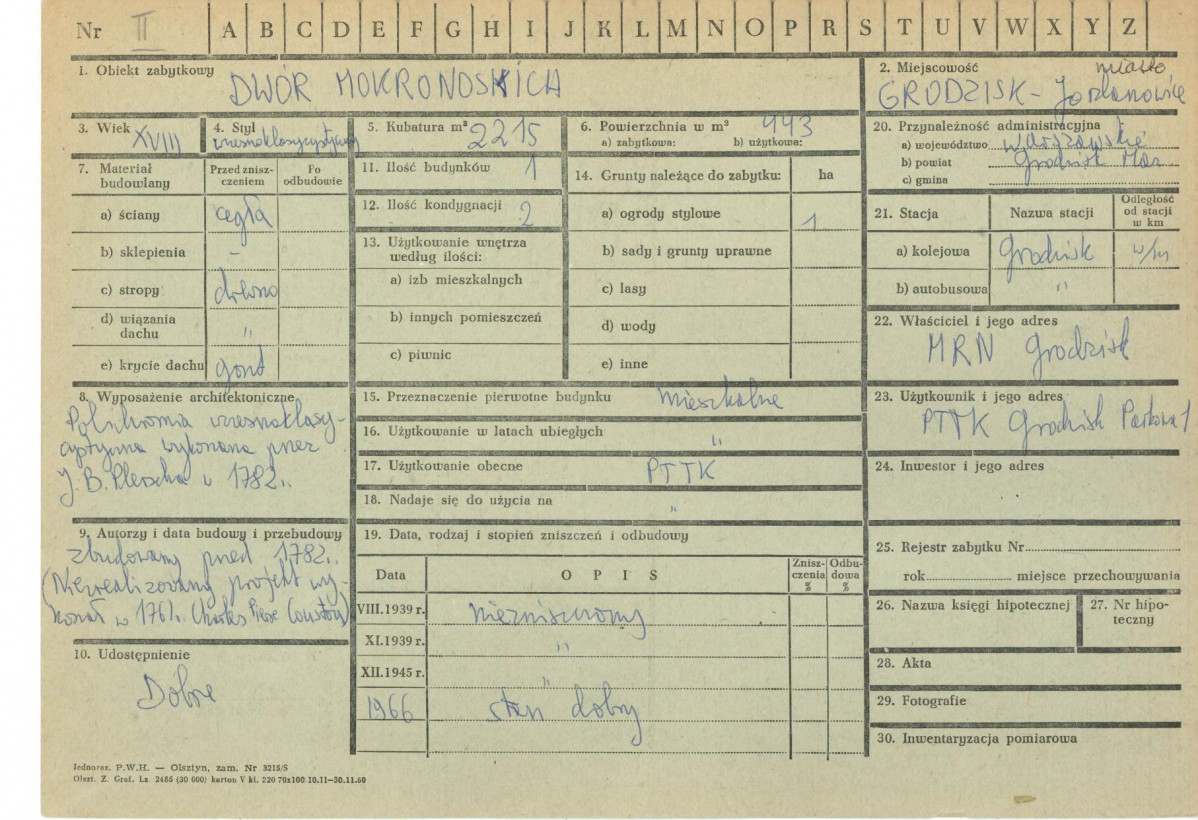 Nr II A B C D E F G H I J K L M N O P R S T U V W X Y Z
1. Obiekt zabytkowy
DWÓR MOKRONOSKICH
2. Miejscowość miasto
GRODZISK - Jordanowice
3. Wiek XVIII
4. Styl
wczesnoklasycystyczny
5. Kubatura m³ 2215
6. Powierzchnia w m² 443
a) zabytkowa: b) użytkowa:
20. Przynależność administracyjna
a) województwo warszawskie
b) powiat Grodzisk Maz.
c) gmina
7. Materiał
budowlany
Przed znisz-
czeniem
Po
odbudowie
a) ściany cegła
b) sklepienia -
c) stropy drewno
d) wiązania
dachu "
e) krycie dachu gont
8. Wyposażenie architektoniczne
Polichromia wczesnoklasy-
cystyczna wykonana przez
J. B. Plerscha w 1782r.
9. Autorzy i data budowy i przebudowy
zbudowany przed 1782r.
(Niezrealizowany projekt wy-
konał w 1761r. Charles Piere Coustou)
10. Udostępnienie
Dobre
11. Ilość budynków 1
12. Ilość kondygnacji 2
13. Użytkowanie wnętrza
według ilości:
a) izb mieszkalnych
b) innych pomieszczeń
c) piwnic
14. Grunty należące do zabytku: ha
a) ogrody stylowe 1
b) sady i grunty uprawne
c) lasy
d) wody
e) inne
15. Przeznaczenie pierwotne budynku mieszkalne
16. Użytkowanie w latach ubiegłych "
17. Użytkowanie obecne PTTK
18. Nadaje się do użycia na "
19. Data, rodzaj i stopień zniszczeń i odbudowy
Data O P I S Znisz-
czenia
% Odbu-
dowa
%
VIII.1939 r. niezniszczony
XI.1939 r. "
XII.1945 r. "
1966 stan dobry
21. Stacja Nazwa stacji Odległość
od stacji
w km
a) kolejowa Grodzisk w/m
b) autobusowa "
22. Właściciel i jego adres
MRN Grodzisk
23. Użytkownik i jego adres
PTTK Grodzisk Parkowa 1
24. Inwestor i jego adres
25. Rejestr zabytku Nr
rok miejsce przechowywania
26. Nazwa księgi hipotecznej
27. Nr hipo-
teczny
28. Akta
29. Fotografie
30. Inwentaryzacja pomiarowa
Jednoraz. P.W.H. — Olsztyn, zam. Nr 3215/S
Olszt. Z. Graf. Lz. 2486 (30 000) karton V kl. 220 70x100 10.11—30.11.60